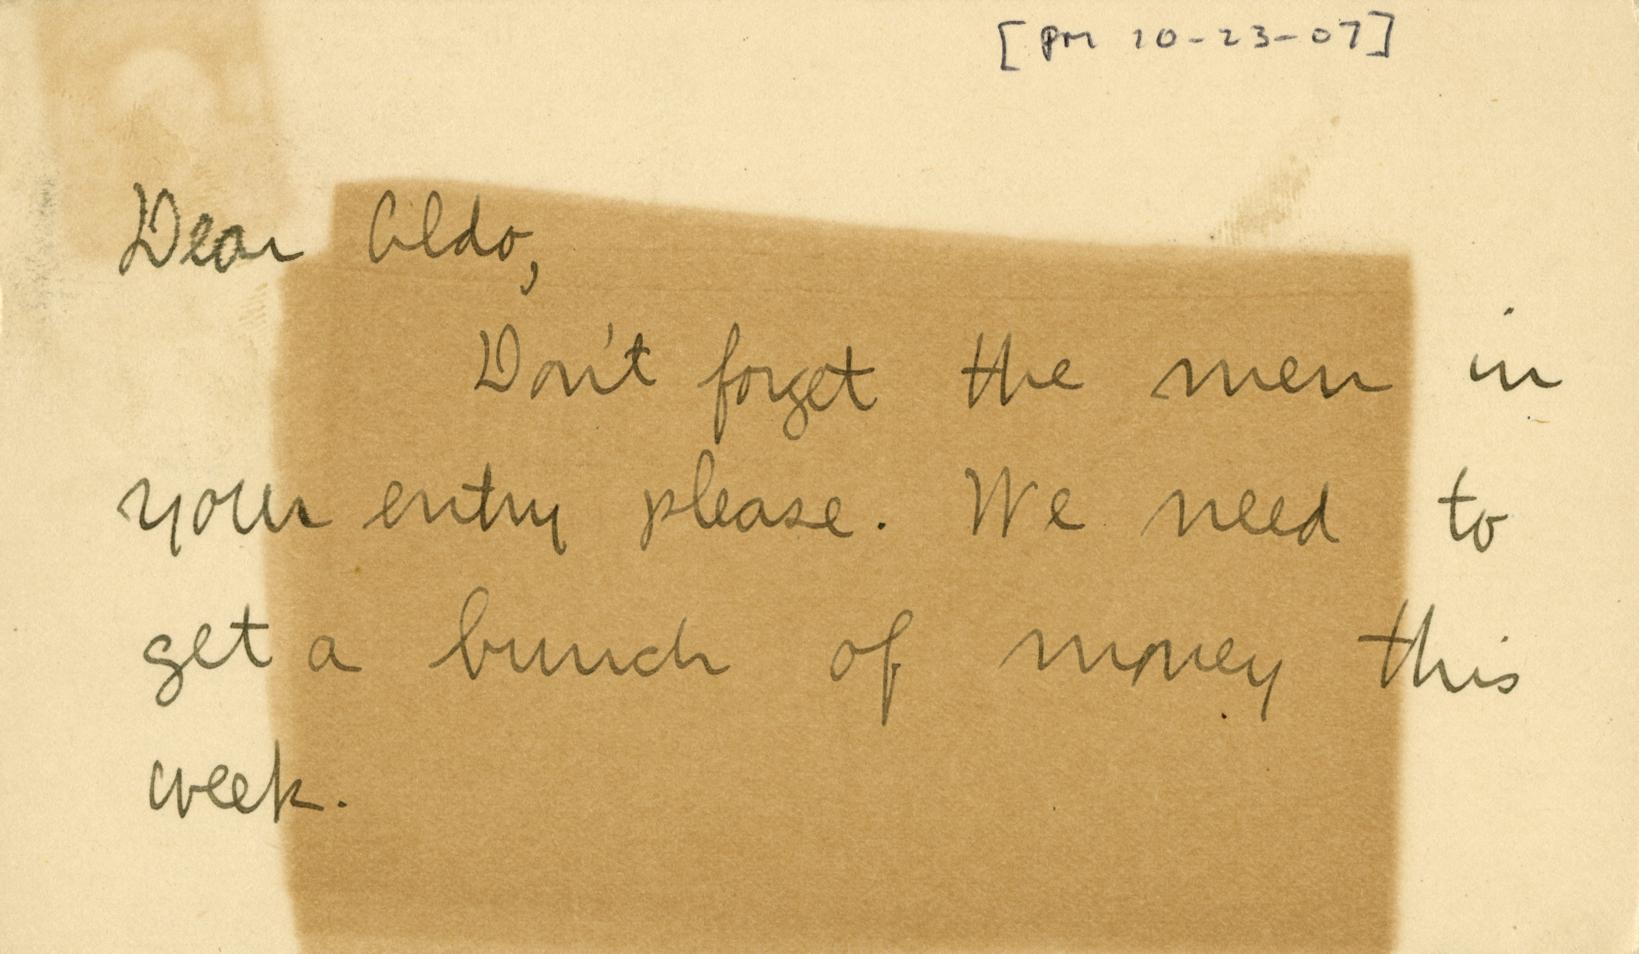 [pm 10-23-07]
Dear Aldo,
Don't forget the men in
your entry please. We need to
get a bunch of money this
week.